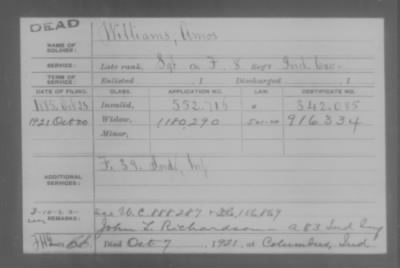 DEAD
NAME OF SOLDIER: Williams, Amos
SERVICE: Late rank, Sgt Co F, 8 Reg't Ind. Cav.
TERM OF SERVICE: Enlisted , 1 Discharged , 1
DATE OF FILING. CLASS. APPLICATION NO. LAW. CERTIFICATE NO.
1885 Invalid, 552.715 342.085
1921 Oct 20 Widow, 1180,290 916334
Minor,
ADDITIONAL SERVICES: F. 39 Ind. Inf
REMARKS: W.C. 888287
John L Richardson A 83 Ind Inf
Died Oct 7, 1921, at Columbus, Ind